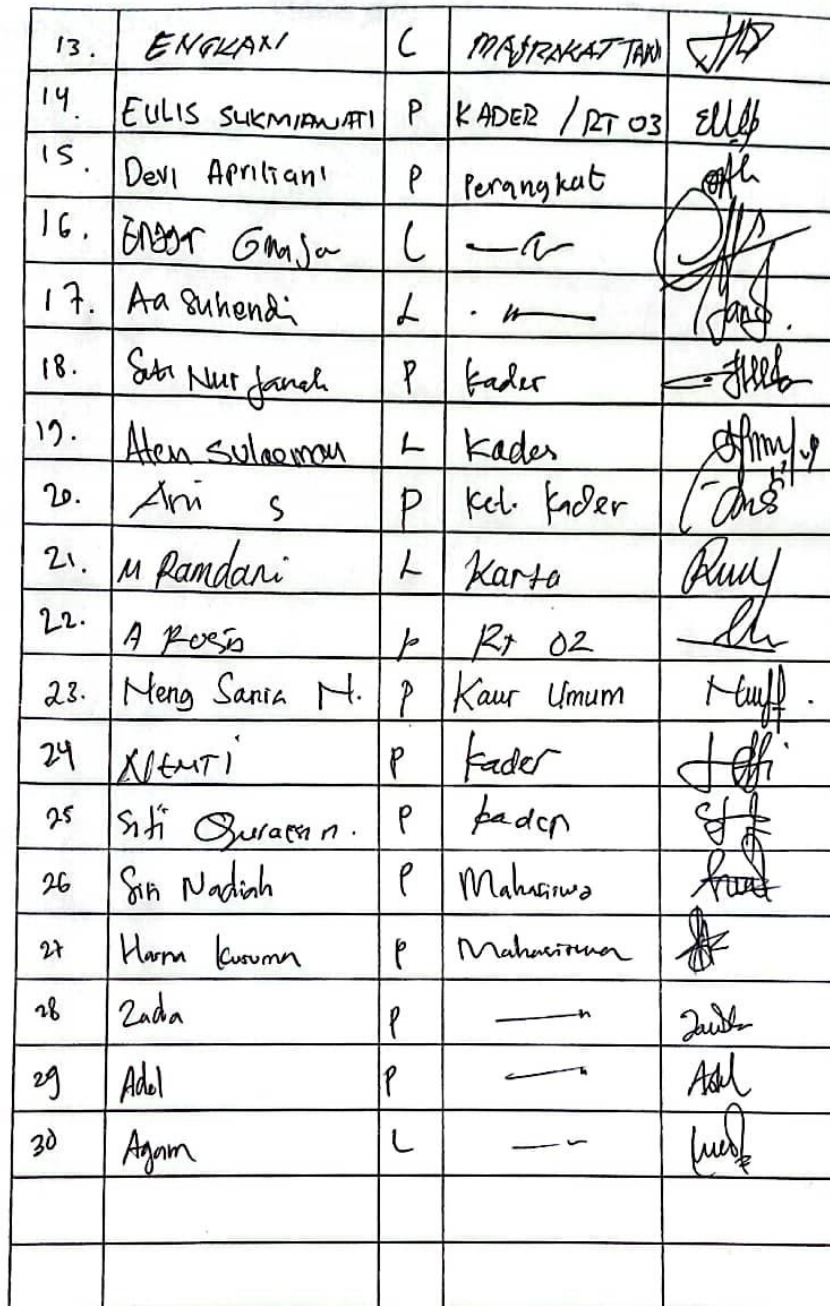 13. ENGKAN L MASYRAKAT TANI
14. EULIS SUKMIANATI P KADER / RT 03
15. Devi Apriliani P Perangkat
16. L
17. Aa Suhendi L - " -
18. Siti Nur Janah P Kader
19. Aten Sulaeman L Kades
20. Ani S P Ket. Kader
21. M Ramdani L Karta
22. A Rosid L Rt 02
23. Neng Sania N. P Kaur Umum
24 P Kader
25 Siti P Kader
26 Siti Nadiah P Mahasiswa
27 Hama Kusuma P Mahasiswa
28 Zada P — " —
29 Adel P — " —
30 Agam L — " —